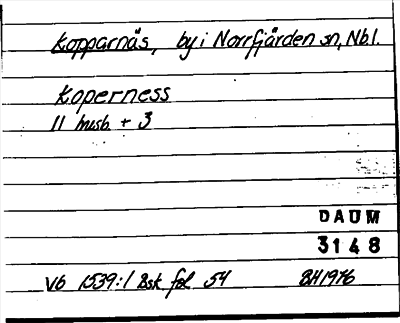 Kopparnäs, by i Norrfjärden sn, Nbl.
Koperness
11 husb. + 3
DAUM
3148
Vb 1539:1 Bsk fol 54 BH1976